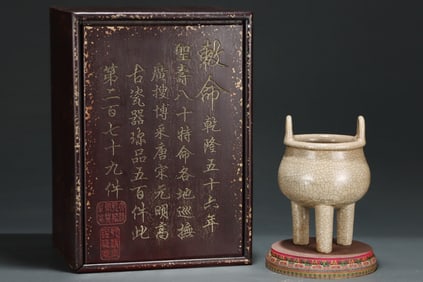 敕命乾隆五十六年
聖壽八十特命各地巡撫
廣搜博采唐宋元明高
古瓷器珍品五百件此
第二百七十九件